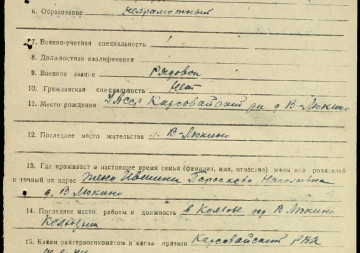 6. Образование неграмотный
7. Военно-учетная специальность 1
8. Должностная квалификация
9. Военное звание Рядовой
10. Гражданская специальность Нет
11. Место рождения УАССР Карсовайский р-н д В-Люкино
12. Последнее место жительства д. В-Люкино
13. Где проживает в настоящее время семья (фамилия, имя, отчество) жены или родителей
и точный их адрес Жена Ившина Парасковья
д. В Люкино
14. Последнее место работы и должность в Колхозе д В Люкино
Колхозник
15. Каким райгорвоенкоматом и когда призван Карсовайский РВК